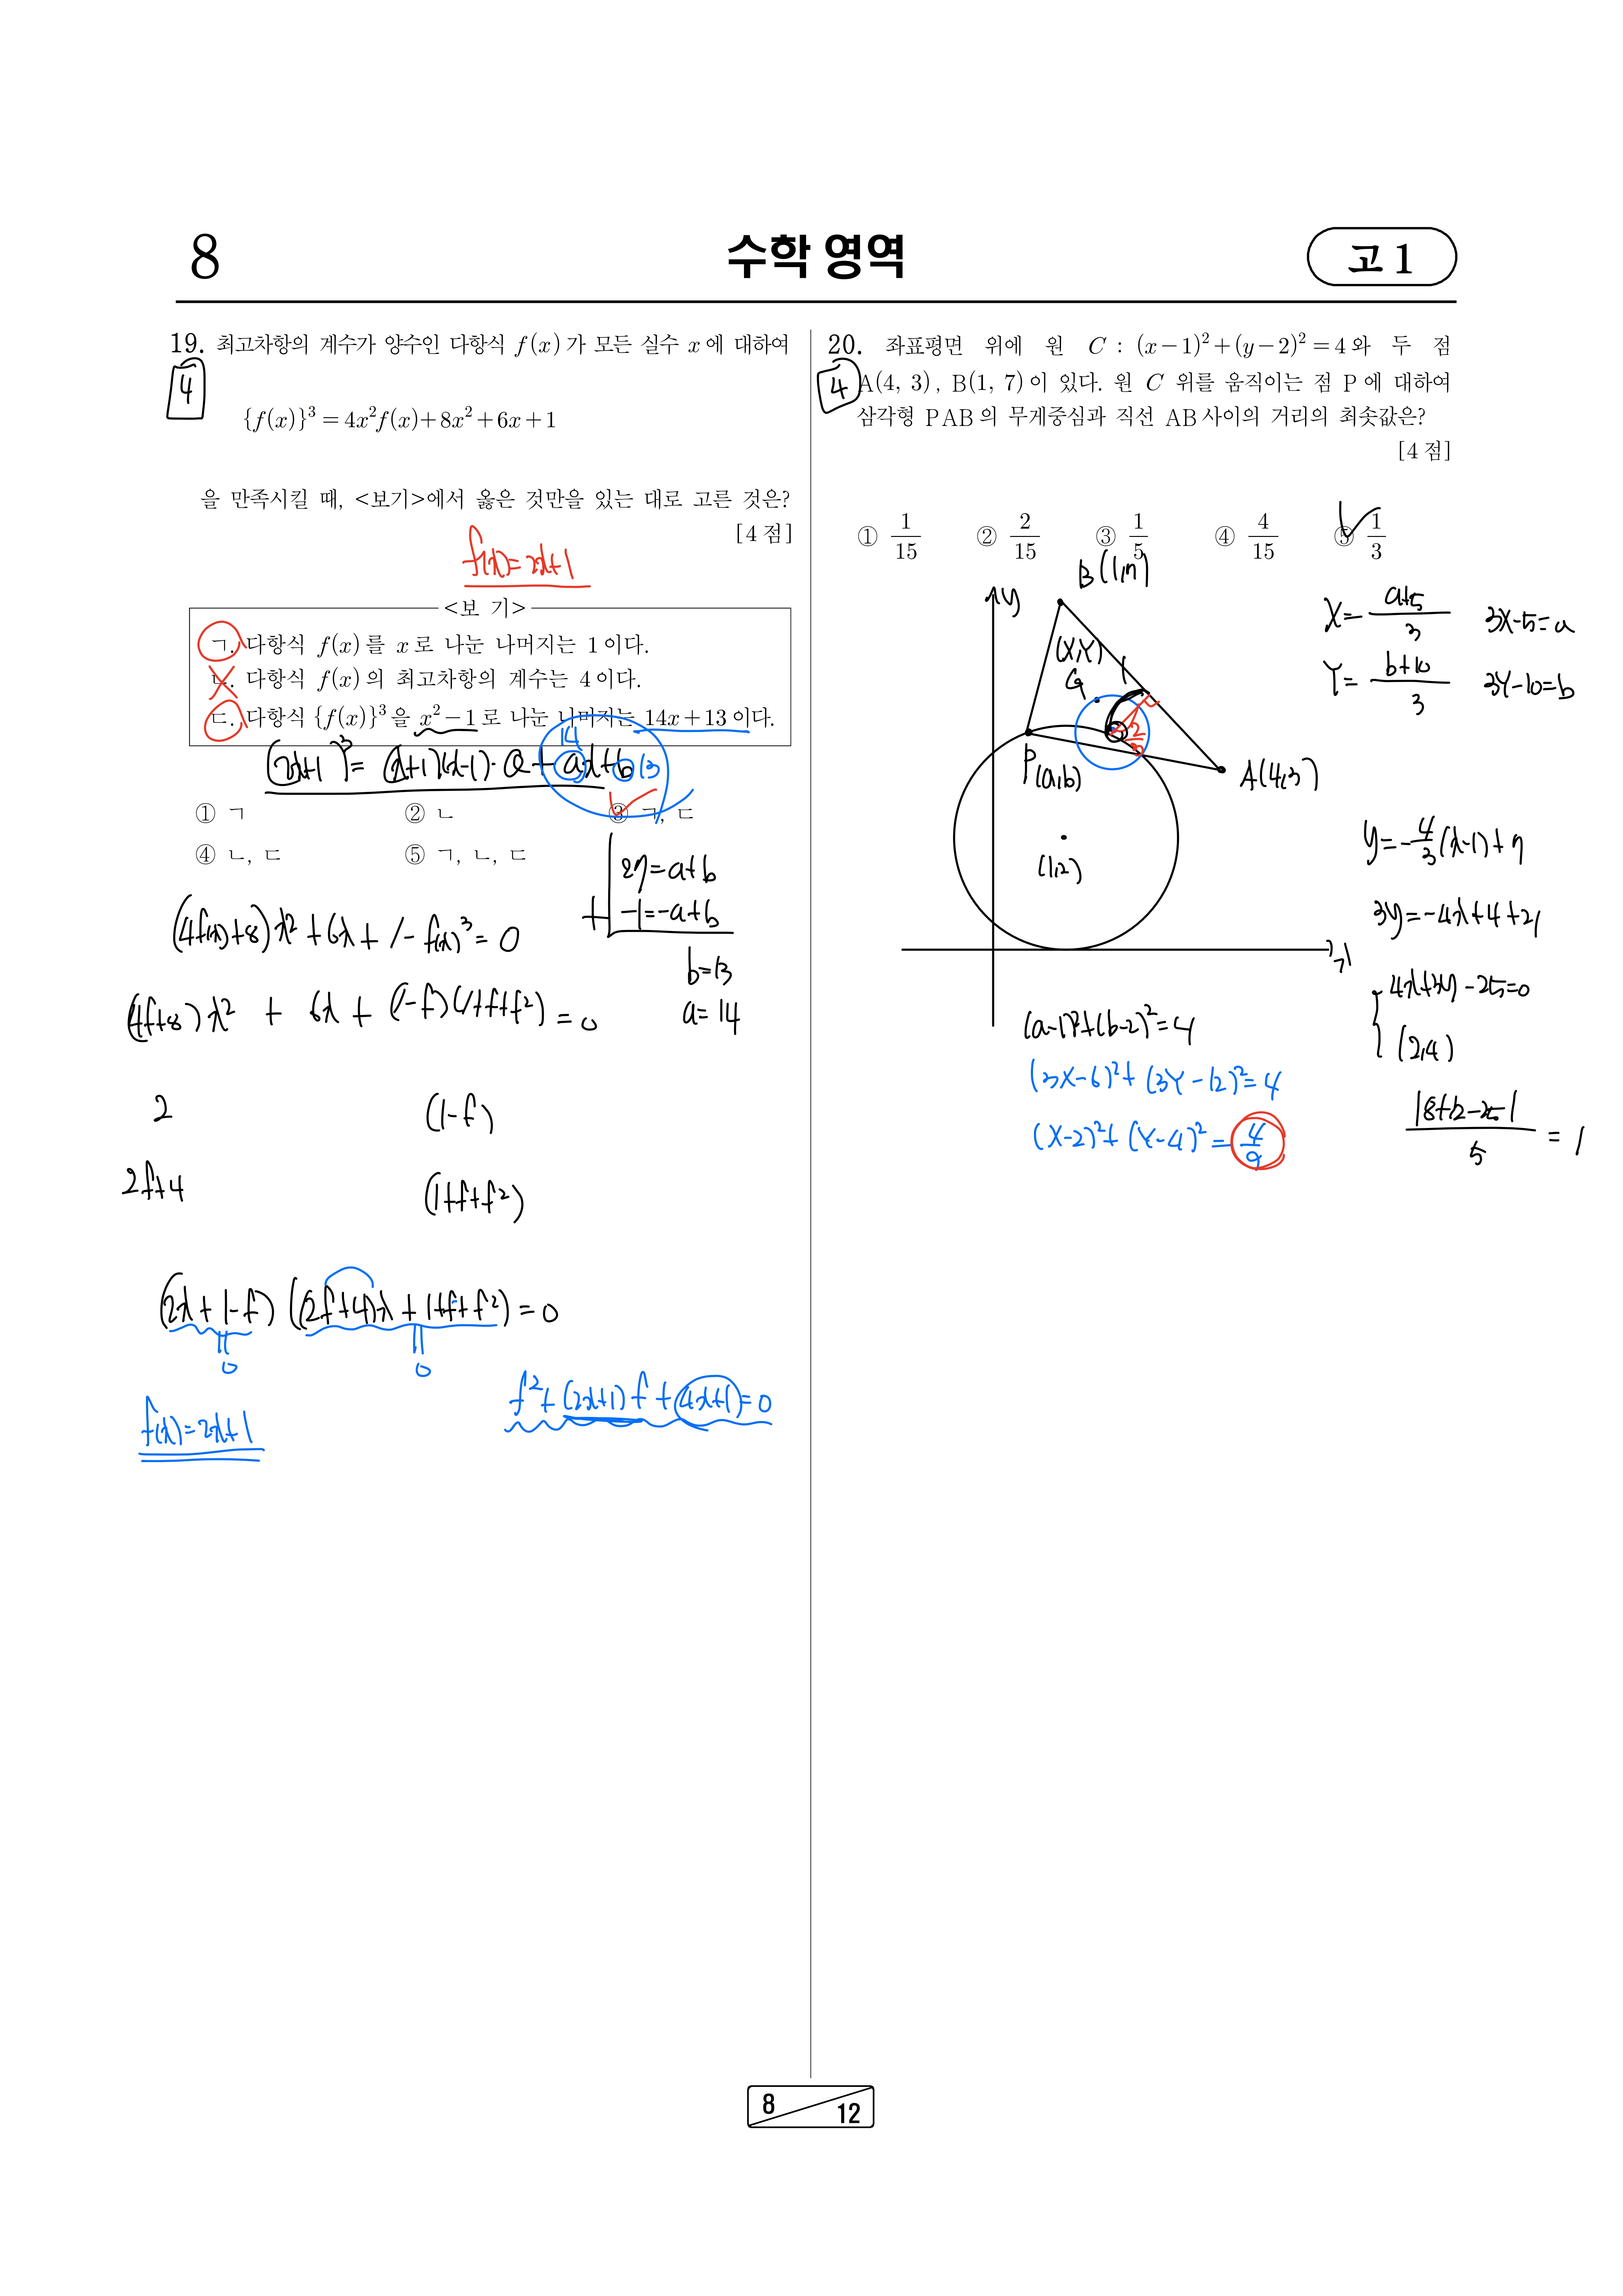 8
수학 영역
고 1
19. 최고차항의 계수가 양수인 다항식 f(x)가 모든 실수 x에 대하여
4
{f(x)}³ = 4x²f(x)+8x²+6x+1
을 만족시킬 때, <보기>에서 옳은 것만을 있는 대로 고른 것은?
[4점]
f(x)=2x+1
<보 기>
ㄱ. 다항식 f(x)를 x로 나눈 나머지는 1이다.
ㄴ. 다항식 f(x)의 최고차항의 계수는 4이다.
ㄷ. 다항식 {f(x)}³을 x²-1로 나눈 나머지는 14x+13이다.
14
(2x+1)³= (x+1)(x-1)·Q+ax+b 13
① ㄱ ② ㄴ ③ ㄱ, ㄷ
④ ㄴ, ㄷ ⑤ ㄱ, ㄴ, ㄷ
27=a+b
+ -1=-a+b
b=13
a=14
(4f(x)+8)x²+6x+1-f(x)³=0
(4f+8)x² + 6x+(1-f)(1+f+f²)=0
2 (1-f)
2f+4 (1+f+f²)
(2x+1-f)((2f+4)x+1+f+f²)=0
0 0
f²+(2x+1)f+(4x+1)=0
f(x)=2x+1
20. 좌표평면 위에 원 C : (x-1)²+(y-2)²=4와 두 점
4
A(4, 3), B(1, 7)이 있다. 원 C 위를 움직이는 점 P에 대하여
삼각형 PAB의 무게중심과 직선 AB사이의 거리의 최솟값은?
[4점]
① 1/15 ② 2/15 ③ 1/5 ④ 4/15 ⑤ 1/3
B(1,7)
y
(X,Y)
G
1
2/3
P(a,b)
A(4,3)
(1,2)
x
X= (a+5)/3 3X-5=a
Y= (b+10)/3 3Y-10=b
y=-4/3(x-1)+7
3y=-4x+4+21
4x+3y-25=0
(2,4)
|8+12-25|/5 = 1
(a-1)²+(b-2)²=4
(3X-6)²+(3Y-12)²=4
(X-2)²+(Y-4)²=4/9
8
12